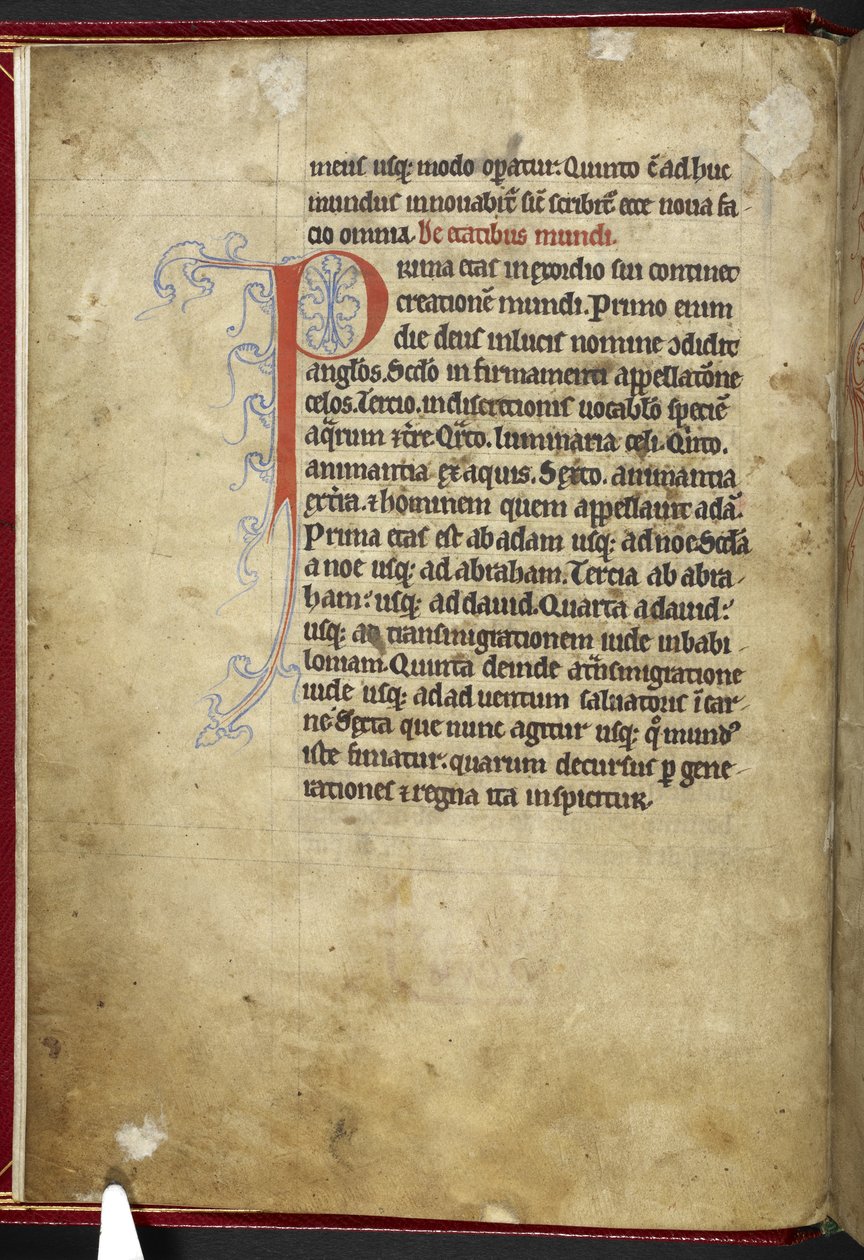 meus usq; modo op̄atur. Quinto ē adhuc
mundus innouabit̄ sic̄ scribit̄ ecce noua fa-
cio omnia. De etatibus mundi.
Prima etas in exordio sui continet
creationē mundi. Primo enim
die deus in lucis nomine ↄdidit
angl̄os. Scd̄o in firmamenti appellatōne
celos. Tercio. in discretionis uocabl̄o speciē
aq̄rum ⁊ t̄re. Qr̄to. luminaria celi. Qi̇nto.
animantia ex aquis. Sexto. animantia
ex tr̄ia. ⁊ hominem quem appellauit adā.
Prima etas est ab adam usq; ad noe. Scd̄a
a noe usq; ad abraham. Tercia ab abra-
ham: usq; ad dauid. Quarta a dauid:
usq; ad transmigrationem iude in babi-
loniam. Quinta deinde a tn̄smigratione
iude usq; ad aduentum saluatoris ī car-
ne. Sexta que nunc agitur usq; qͦ mundꝰ
iste finiatur. quarum decursus ꝑ gene-
rationes ⁊ regna ita inspicitur.